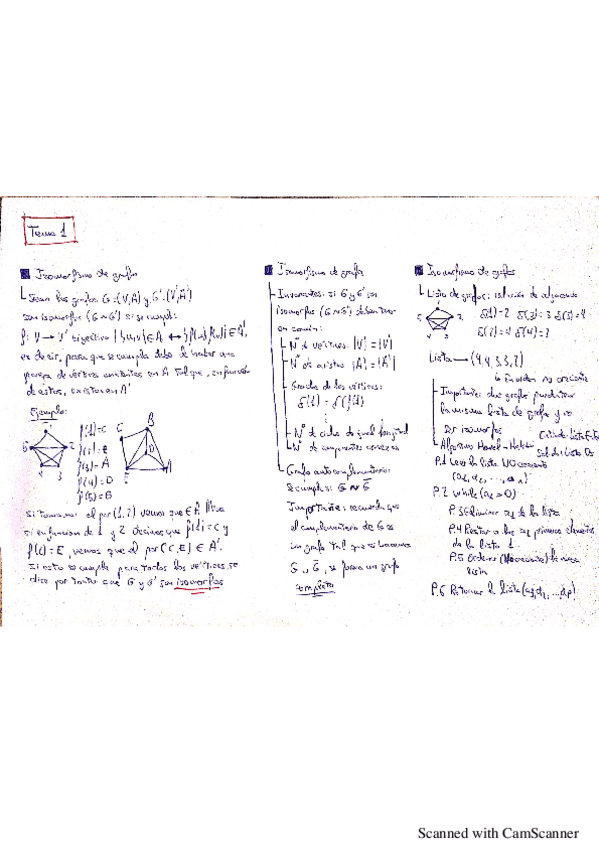 Tema 1
Isomorfismo de grafos
Sean los grafos G=(V,A) y G'=(V',A')
son isomorfos (G≈G') si se cumple:
f: V → V' biyectiva | {u,v}∈A ↔ {f(u),f(v)}∈A',
es decir, para que se cumpla debe de haber una
pareja de vértices en A tal que, en función
de estos, exista en A'
Ejemplo:
1
2
3
4
5
f(1)=C
f(2)=E
f(3)=A
f(4)=D
f(5)=B
C
B
D
E
A
Si tomamos el par (1,2) vemos que ∈A.
si en función de 1 y 2 decimos que f(1)=C y
f(2)=E, vemos que el par (C,E)∈A'.
Si esto se cumple para todos los vértices, se
dice por tanto que G y G' son isomorfos
Isomorfismo de grafos
Invariantes: si G y G' son
isomorfos (G≈G') deben tener
en común:
Nº de vértices: |V|=|V'|
Nº de aristas: |A|=|A'|
Grados de los vértices:
Nº de ciclos de igual longitud
Nº de componentes conexas
Grafo autocomplementario:
Se cumple si G≈G̅
Importante: recuerda que
el complementario de G es
un grafo tal que si hacemos
G ∪ G̅, se forma un grafo
completo
Isomorfismo de grafos
Lista de grados:
1
2
3
4
5
δ(1)=2 δ(3)=3 δ(5)=4
δ(2)=4 δ(4)=3
Lista → (4,4,3,3,2)
en orden no creciente
Importante: dos grafos pueden tener
la misma lista de grados y no
ser isomorfos
Algoritmo Havel-Hakimi
P.1 Leer la lista
P.2 While (a₁>0)
P.3 Eliminar a₁ de la lista
P.4 Restar a los a₁ primeros elementos
de la lista 1
P.5 Ordenar la nueva
lista
P.6 Retornar la lista
Scanned with CamScanner